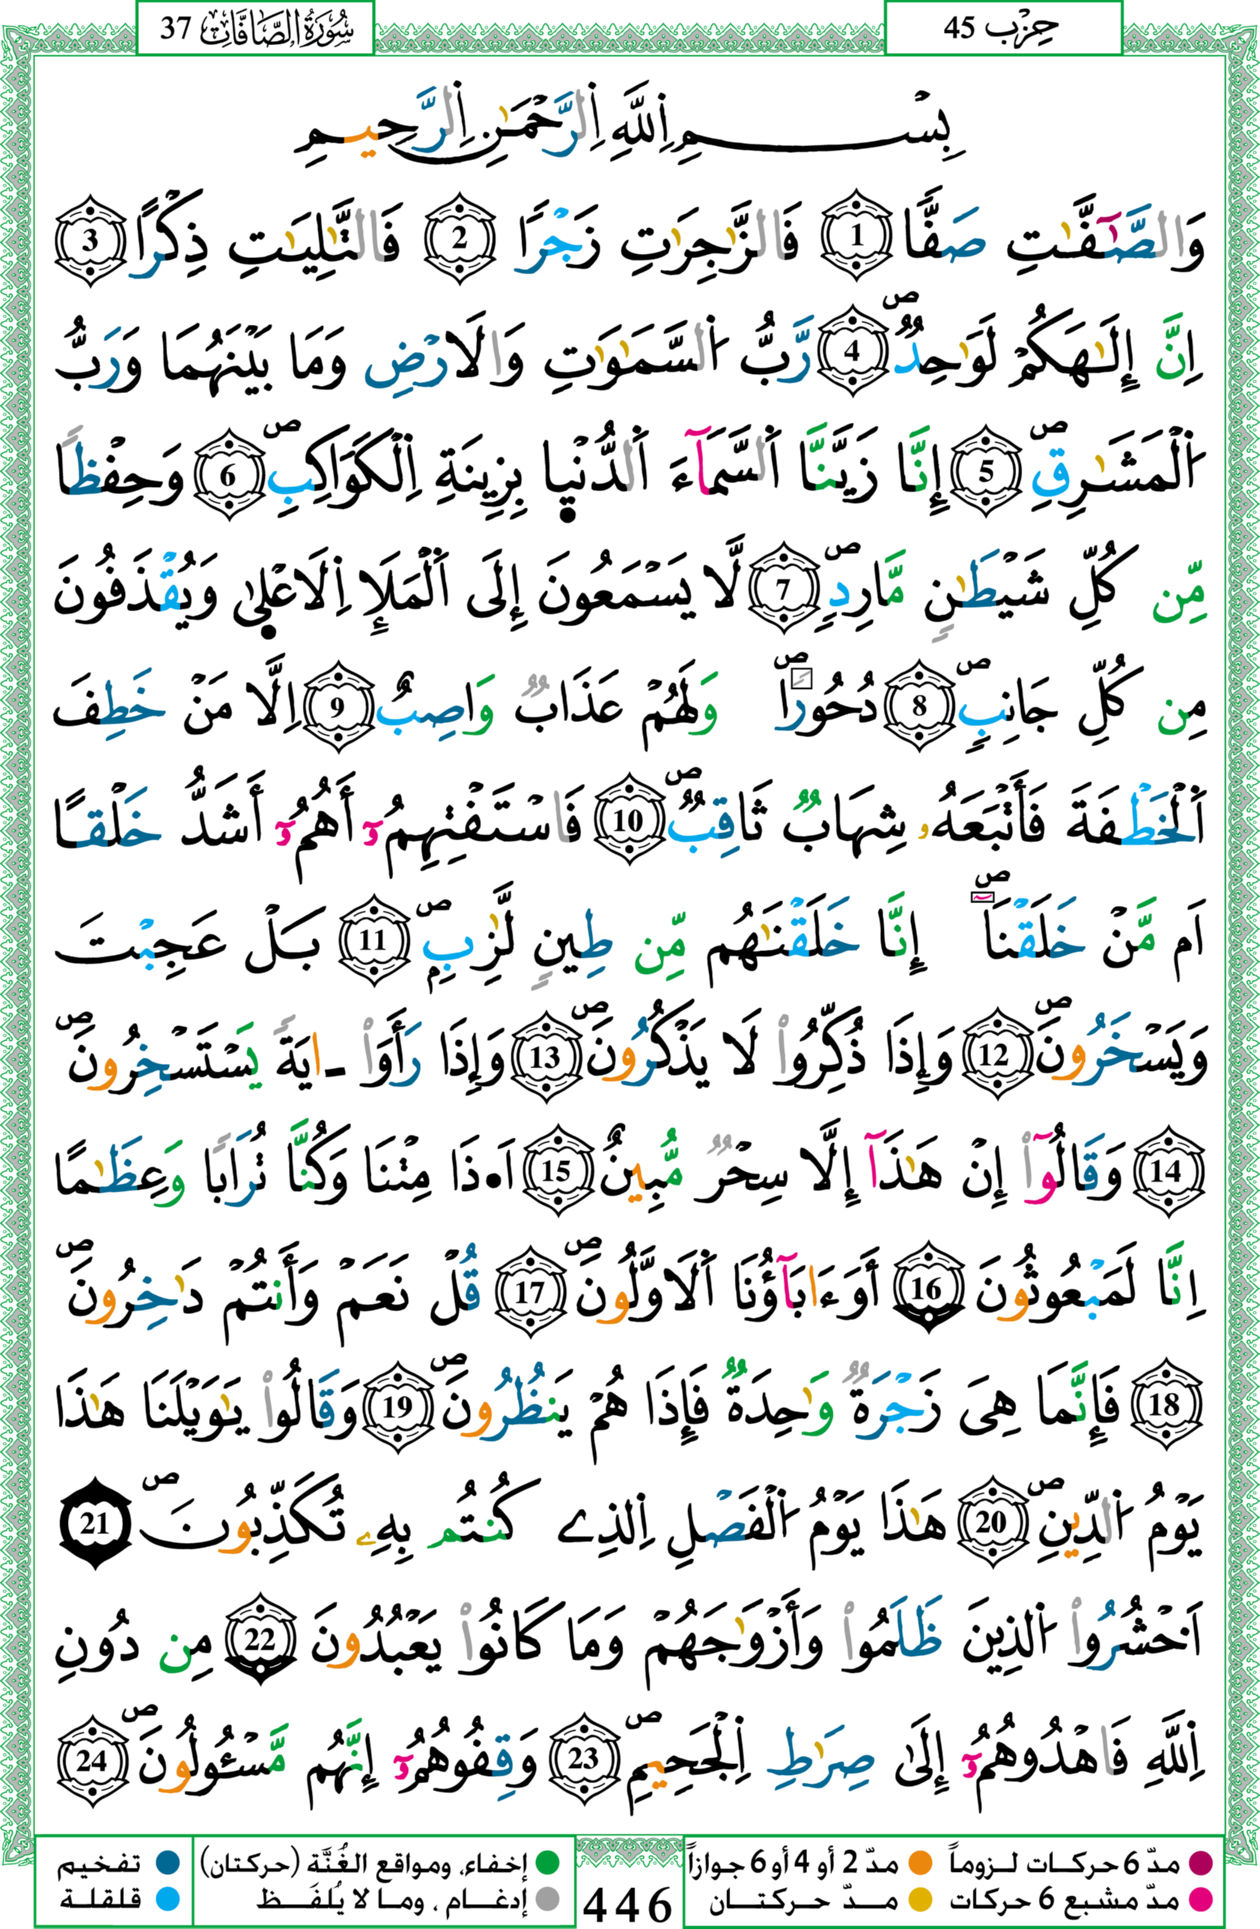 حِزْب 45
سُورَةُ الصَّافَّاتِ 37
بِسْمِ اِ۬للَّهِ اِ۬لرَّحْمَٰنِ اِ۬لرَّحِيمِ
وَالصَّٰٓفَّٰتِ صَفّاٗ 1 فَالزَّٰجِرَٰتِ زَجْراٗ 2 فَالتَّٰلِيَٰتِ ذِكْراً 3
اِنَّ إِلَٰهَكُمْ لَوَٰحِدٞ ص 4 رَّبُّ اُ۬لسَّمَٰوَٰتِ وَالَارْضِ وَمَا بَيْنَهُمَا وَرَبُّ
اُ۬لْمَشَٰرِقِ ص 5 إِنَّا زَيَّنَّا اَ۬لسَّمَآءَ اَ۬لدُّنْي۪ا بِزِينَةِ اِ۬لْكَوَاكِبِ ص 6 وَحِفْظاٗ
مِّن كُلِّ شَيْطَٰنٖ مَّارِدٖ ص 7 لَّا يَسْمَعُونَ إِلَى اَ۬لْمَلَإِ اِ۬لَاعْل۪ىٰ وَيُقْذَفُونَ
مِن كُلِّ جَانِبٖ ص 8 دُحُوراٗ ص وَلَهُمْ عَذَابٞ وَاصِبٌ 9 اِلَّا مَنْ خَطِفَ
اَ۬لْخَطْفَةَ فَأَتْبَعَهُۥ شِهَابٞ ثَاقِبٞ ص 10 فَاسْتَفْتِهِمُۥٓ أَهُمُۥٓ أَشَدُّ خَلْقاً
اَم مَّنْ خَلَقْنَا ص إِنَّا خَلَقْنَٰهُم مِّن طِينٖ لَّٰزِبِۢ ص 11 بَلْ عَجِبْتَ
وَيَسْخَرُونَ ص 12 وَإِذَا ذُكِّرُواْ لَا يَذْكُرُونَ ص 13 وَإِذَا رَأَوَاْ ـايَةٗ يَسْتَسْخِرُونَ ص
14 وَقَالُوٓاْ إِنْ هَٰذَآ إِلَّا سِحْرٞ مُّبِينٌ 15 اَ۟ذَا مِتْنَا وَكُنَّا تُرَاباٗ وَعِظَٰماً
اِنَّا لَمَبْعُوثُونَ 16 أَوَءَابَآؤُنَا اَ۬لَاوَّلُونَ ص 17 قُلْ نَعَمْ وَأَنتُمْ دَٰخِرُونَ ص
18 فَإِنَّمَا هِيَ زَجْرَةٞ وَٰحِدَةٞ فَإِذَا هُمْ يَنظُرُونَ ص 19 وَقَالُواْ يَٰوَيْلَنَا هَٰذَا
يَوْمُ اُ۬لدِّينِ ص 20 هَٰذَا يَوْمُ اُ۬لْفَصْلِ اِ۬لذِے كُنتُم بِهِۦ تُكَذِّبُونَ ص 21
اَ۟حْشُرُواْ اُ۬لذِينَ ظَلَمُواْ وَأَزْوَٰجَهُمْ وَمَا كَانُواْ يَعْبُدُونَ 22 مِن دُونِ
اِ۬للَّهِ فَاهْدُوهُمُۥٓ إِلَىٰ صِرَٰطِ اِ۬لْجَحِيمِ ص 23 وَقِفُوهُمُۥٓ إِنَّهُم مَّسْـُٔولُونَ ص 24
مدّ 6 حركات لـزوماً مدّ 2 أو 4 أو 6 جوازاً إخفاء، ومواقع الغُنَّة (حركتان) تفخيم
مدّ مشبع 6 حركات مــدّ حركتــان إدغـام ، ومـا لا يُلفَـظ قلقلة
446